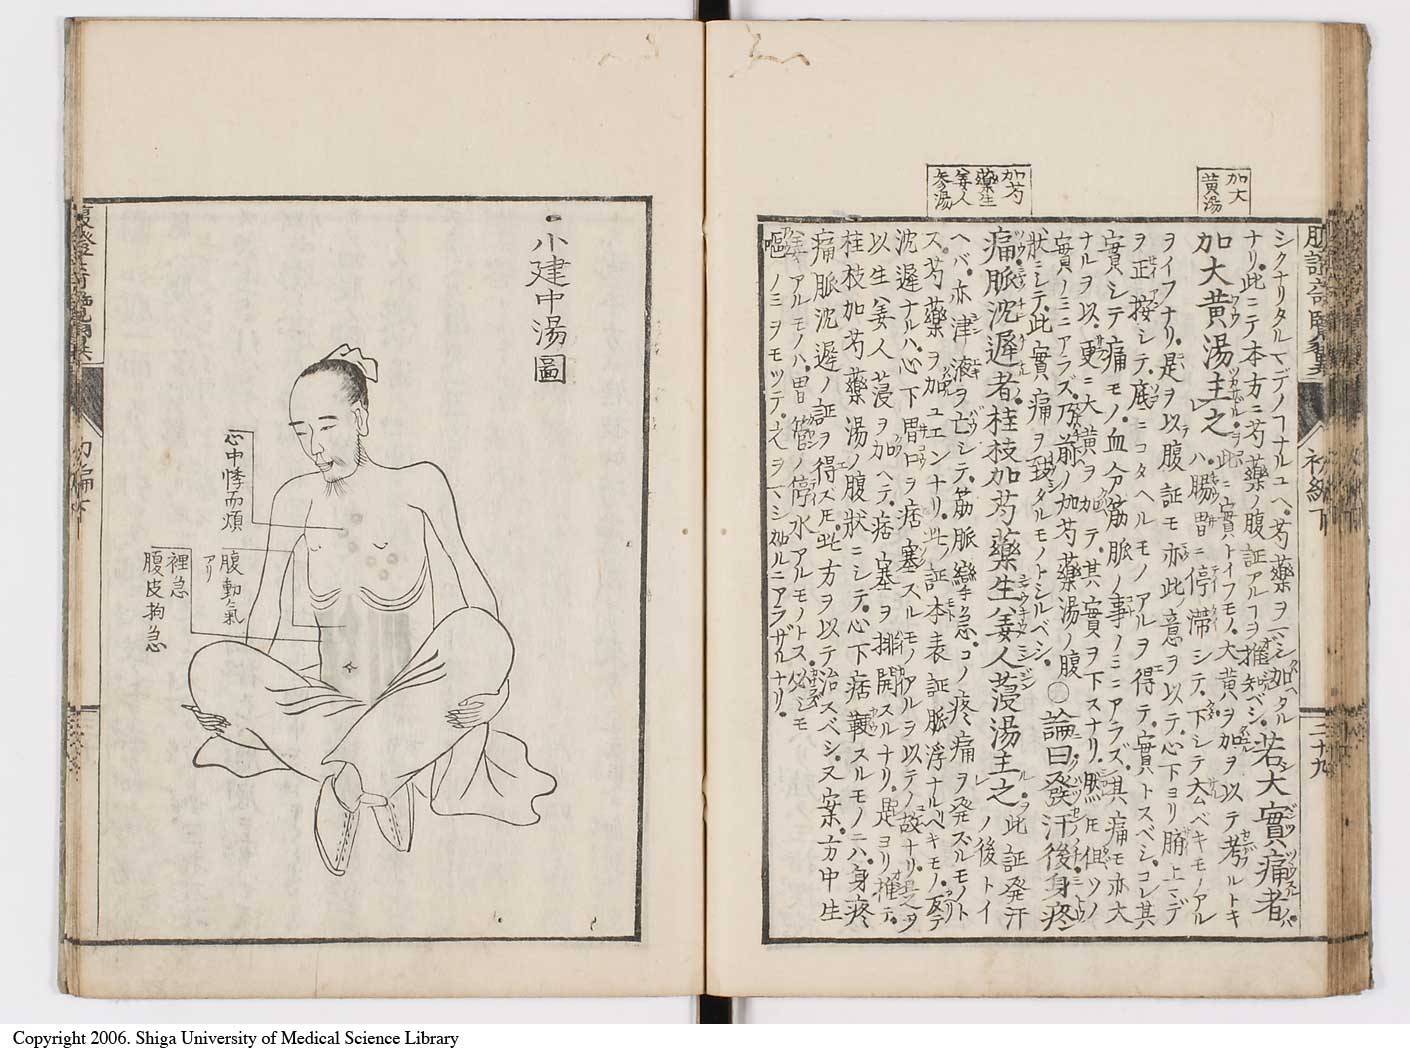 加大
黄湯
加芍
藥生
姜人
参湯
シクナリタルマデノヿナルユヘ。芍藥ヲ一シ加ヘタル若大實痛者
ナリ。此ニテ本方ニ芍藥ノ腹証アルヿヲ推知ベシ。
加大黄湯主之此ニ實トイフモノ。大黄ヲ加ヲ以テ考ルトキ
ハ腸胃ニ停滞シテ、下シテ去ベキモノアル
ヲイフナリ。是ヲ以腹証モ亦此ノ意ヲ以テ。心下ヨリ臍上マデ
ヲ正按シテ。底ニコタヘルモノアルヲ得テ。實トスベシ。コレ其
實シテ痛モノ。血分筋脈ノ事ノミニアラズ。其痛モ亦大
實ノミニアラズ。乃前ノ加芍藥湯ノ腹
ナルヲ以。更ニ大横ヲ加テ。其實ヲ下スナリ。然モ但ツノ
状ニシテ。此實痛ヲ致シタルモノトシルベシ。〇論曰發汗後身疼
痛脈沈遲者桂枝加芍藥生姜人薓湯主之此証発汗
ノ後トイ
ヘバ。亦津液ヲ亡シテ。筋脈攣急。コノ疼痛ヲ発スルモノト
ス。芍藥ヲ加ユエンナリ。此ノ証本表証脈浮ナルベキモノ。反テ
沈遲ナルハ。心下胃口ヲ痞塞スルモノアルヲ以テノ故ナリ。是ヲ
以生姜人薓ヲ加ヘテ。痞塞ヲ排開スルナリ。是ヨリ推テ。
桂枝加芍藥湯ノ腹状ニシテ。心下痞鞕スルモノニハ。身疼
痛脈沈遲ノ証ヲ得ズモ。此方ヲ以テ治スベシ。又案。方中生
姜アルモノハ。胃管ノ停水アルモノトス。必ズシモ
嘔ノミヲモツテ。之ヲ一シ加ルニアラザルナリ。
初編下
二十九
小建中湯圖
心中悸而煩
腹動氣
アリ
裡急
腹皮拘急
Copyright 2006. Shiga University of Medical Science Library